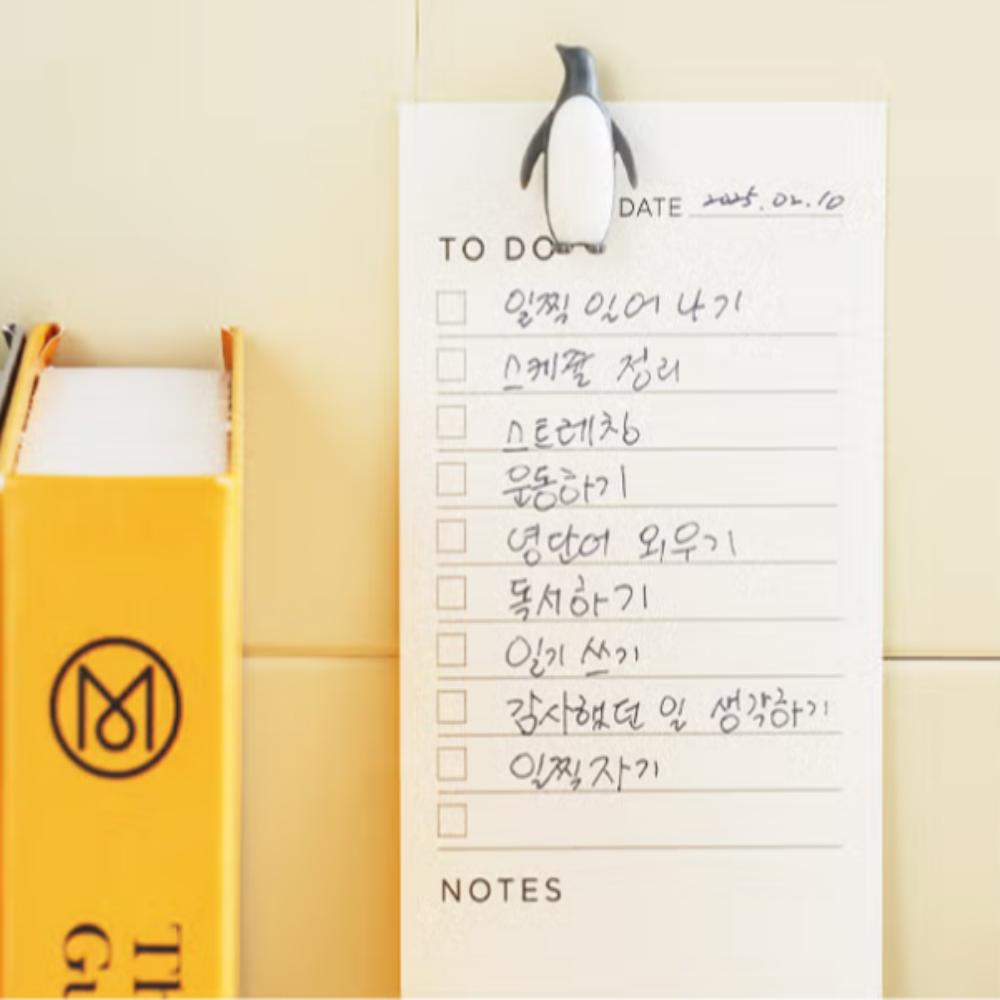 DATE 2025.02.10
TO DO
일찍 일어나기
스케쥴 정리
스트레칭
운동하기
영단어 외우기
독서하기
일기 쓰기
감사했던 일 생각하기
일찍자기
NOTES